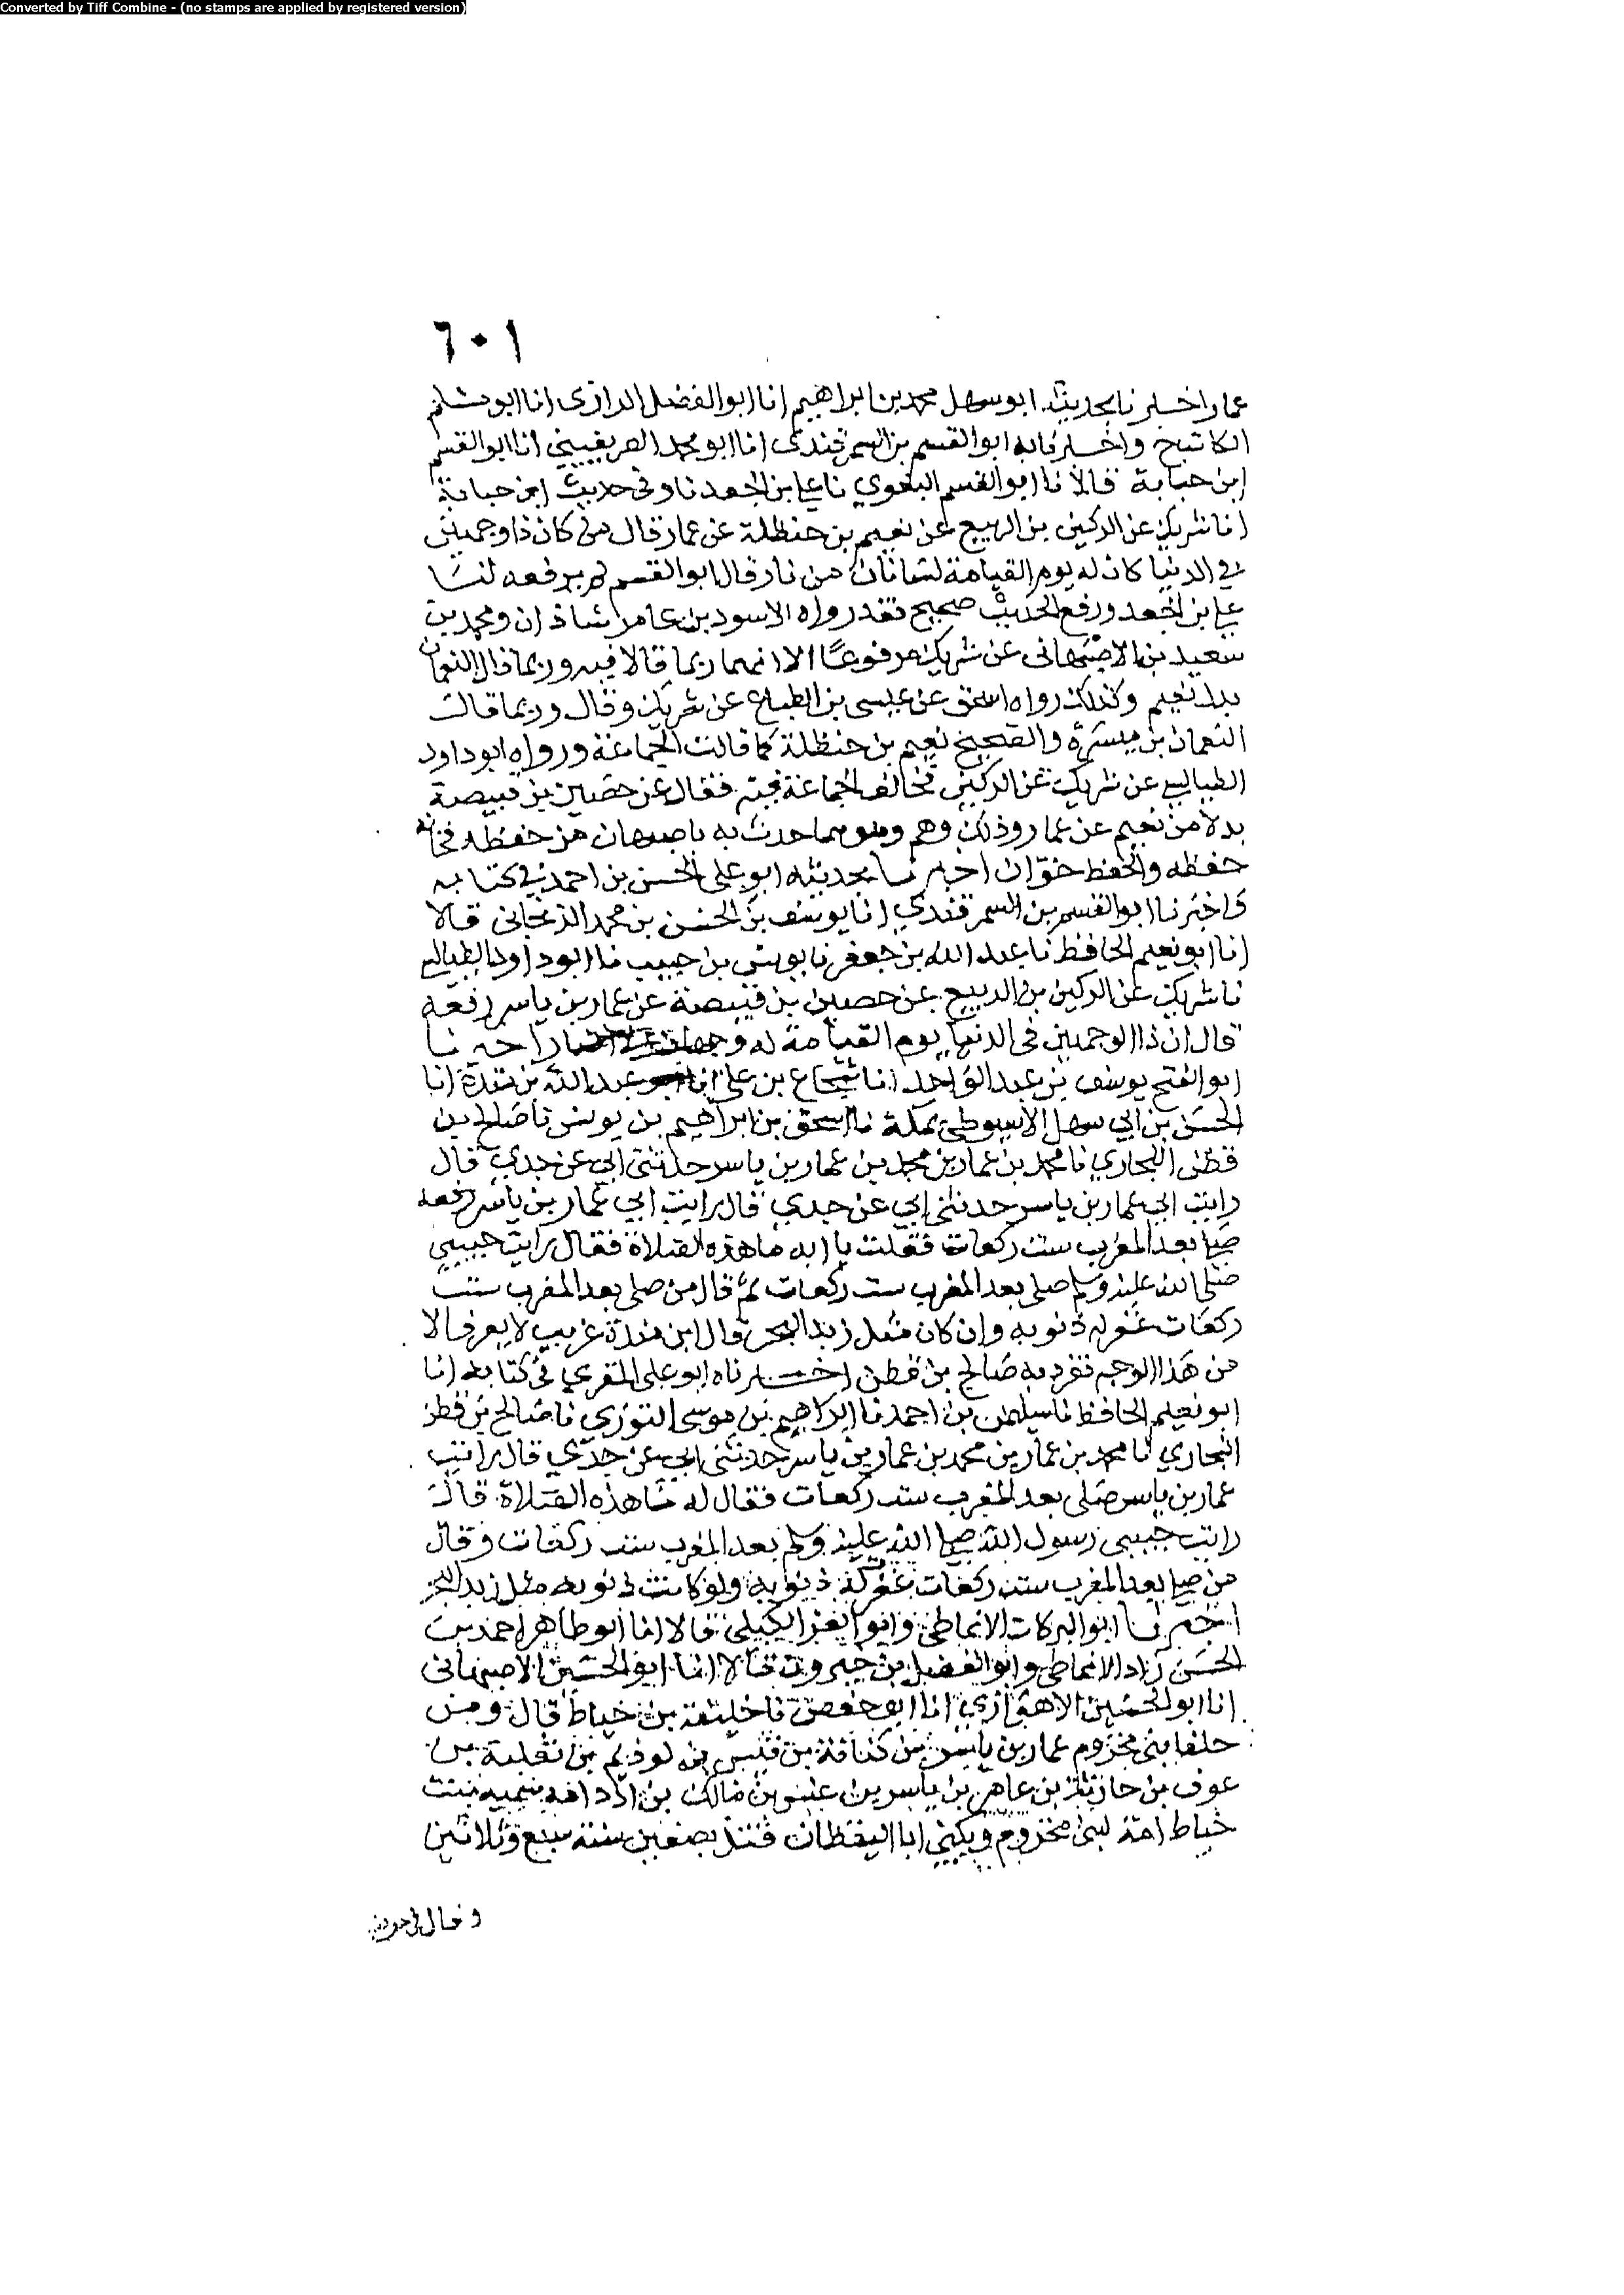 Converted by Tiff Combine - (no stamps are applied by registered version)
٦٠١
عمار اخبرنا بحديثه ابو سهل محمد بن ابراهيم انا ابو الفضل الرازى انا ابو مسلم
الكاتب ح واخبرنا به ابو القسم بن السمرقندى انا ابو محمد الصريفيني انا ابو القسم
ابن حبابة قالا نا ابو القسم البغوي نا علي بن الجعد نا وفى حديث ابن حبابة
انا شريك عن الركين بن الربيع عن نعيم بن حنظلة عن عمار قال من كان ذا وجهين
في الدنيا كان له يوم القيامة لسانان من نار قال ابو القسم لم يرفعه لنا
علي بن الجعد ورفع الحديث صحيح فقد رواه الاسود بن عامر شاذان ومحمد بن
سعيد بن الاصبهانى عن شريك مرفوعا الا انهما ربما قالا فيه وربما قال النعمان
بدل نعيم وكذلك رواه اسحق عن عيسى بن الطباع عن شريك وقال وربما قال
النعمان بن ميسرة والصحيح نعيم بن حنظلة كما قالت الجماعة ورواه ابو داود
الطيالسي عن شريك عن الركين فخالف الجماعة فيه فقال عن حصين بن قبيصة
بدلا من نعيم عن عمار وذلك وهم وهو مما حدث به باصبهان من حفظه فخانه
حفظه والحفظ خوّان اخبرنا بحديثه ابو علي الحسن بن احمد في كتابه
واخبرنا ابو القسم بن السمرقندي انا يوسف بن الحسن بن محمد الزنجانى قالا
انا ابو نعيم الحافظ نا عبد الله بن جعفر نا يونس بن حبيب نا ابو داود الطيالسي
نا شريك عن الركين بن الربيع عن حصين بن قبيصة عن عمار بن ياسر رفعه
قال ان ذا الوجهين فى الدنيا يوم القيامة له وجهان اخبرنا
ابو الفتح يوسف بن عبد الواحد انا شجاع بن علي انا ابو عبد الله بن مندة انا
الحسن بن ابي سهل الاسيوطي بمكة نا اسحق بن ابراهيم بن يونس نا صالح بن
قطن البخاري نا محمد بن عمار بن محمد بن عمار بن ياسر حدثني ابي عن جدي قال
رايت ابي عمار بن ياسر حدثني ابي عن جدي قال رايت ابي عمار بن ياسر رفعه
صلى بعد المغرب ست ركعات فقلت يا ابه ما هذه الصلاة فقال رايت حبيبي
صلى الله عليه وسلم صلى بعد المغرب ست ركعات ثم قال من صلى بعد المغرب ست
ركعات غفر له ذنوبه وان كان مثل زبد البحر قال ابن مندة غريب لا يعرف الا
من هذا الوجه تفرد به صالح بن قطن اخبرناه ابو على المقري فى كتابه انا
ابو نعيم الحافظ نا سليمان بن احمد نا ابراهيم بن موسى التوزي نا صالح بن قطن
البخاري نا محمد بن عمار بن محمد بن عمار بن ياسر حدثني ابي عن جدّي قال رايت
عمار بن ياسر صلى بعد المغرب ست ركعات فقال له ما هذه الصلاة قال
رايت حبيبى رسول الله صلى الله عليه وسلم بعد المغرب ست ركعات وقال
من صلى بعد المغرب ست ركعات غفرت له ذنوبه ولو كانت ذنوبه مثل زبد البحر
اخبرنا ابو البركات الانماطى وابو العز الكيلى قالا انا ابو طاهر احمد بن
الحسن زاد الانماطى وابو الفضل بن خيرون قالا انا ابو الحسين الاصبهانى
انا ابو الحسين الاهوازي انا ابو حفص نا خليفة بن خياط قال ومن
حلفا بنى مخزوم عمار بن ياسر بن كنانة بن قيس بن لوذيم بن ثعلبة بن
عوف بن حارثة بن عامر بن ياسر بن عنس بن مالك بن ادد امه سمية بنت
خياط امة لبنى مخزوم ويكنى ابا اليقظان قتل بصفين سنة سبع وثلاثين
وقال فى